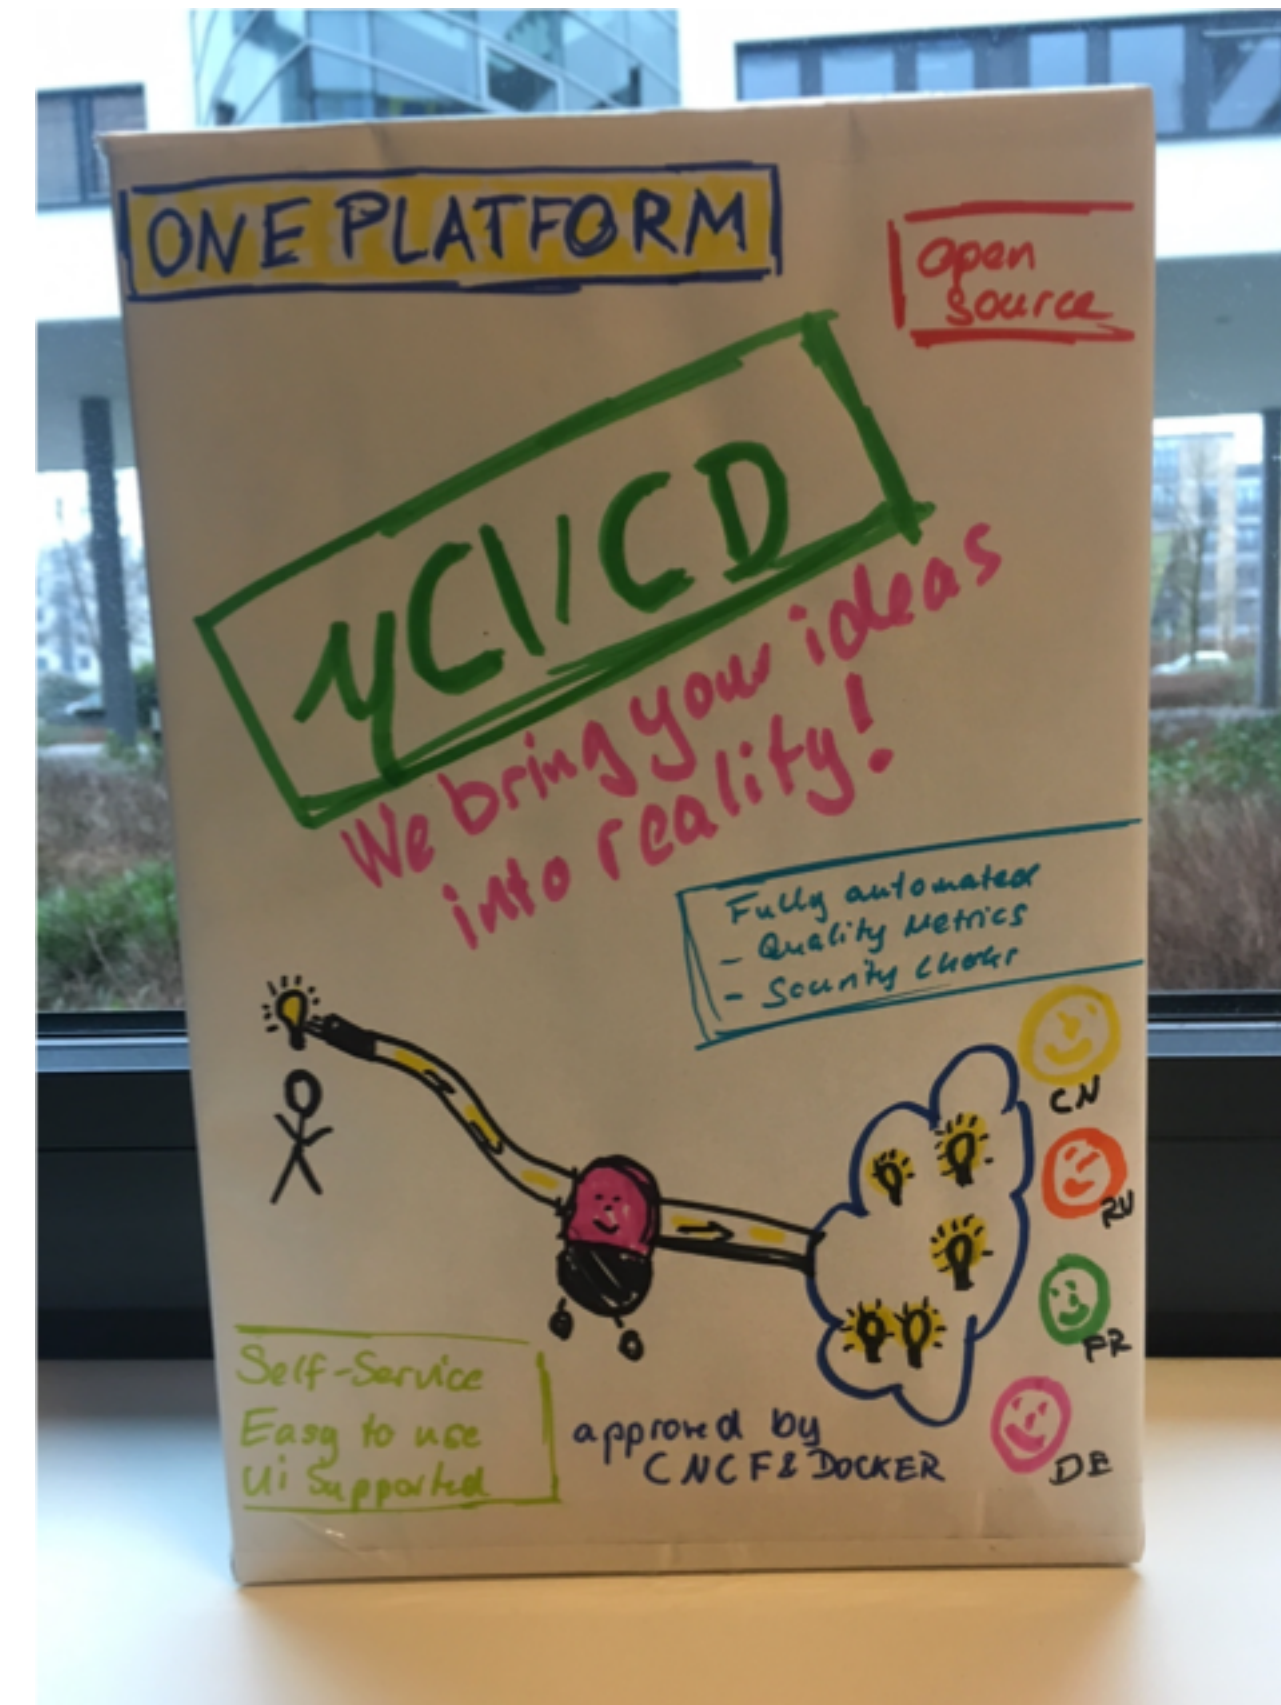 ONE PLATFORM
Open
source
yCI/CD
We bring your ideas
into reality!
Fully automated
- Quality Metrics
- Security checks
CN
RU
FR
DE
Self-Service
Easy to use
Ui Supported
approved by
CNCF & DOCKER